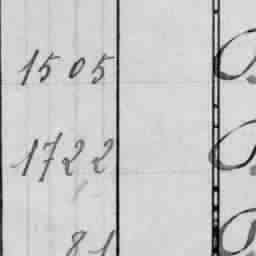 1505
1722
81